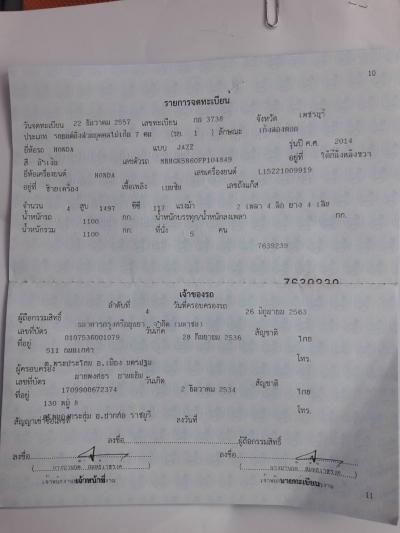 10
รายการจดทะเบียน
วันจดทะเบียน 22 ธันวาคม 2557 เลขทะเบียน กธ 3738 จังหวัด เพชรบุรี
ประเภท รถยนต์นั่งส่วนบุคคลไม่เกิน 7 คน (รย. 1 ) ลักษณะ เก๋งสองตอน
ยี่ห้อรถ HONDA แบบ JAZZ รุ่นปี ค.ศ. 2014
สี เลขตัวรถ MRHGK5860FP104849 อยู่ที่
ยี่ห้อเครื่องยนต์ HONDA เลขเครื่องยนต์ L15Z21009919
อยู่ที่ เชื้อเพลิง เบนซิน เลขถังแก๊ส
จำนวน 4 สูบ 1497 ซีซี 117 แรงม้า 2 เพลา 4 ล้อ ยาง 4 เส้น
น้ำหนักรถ 1100 กก. น้ำหนักบรรทุก/น้ำหนักลงเพลา กก.
น้ำหนักรวม 1100 กก. ที่นั่ง 5 คน
7639239
7639239
เจ้าของรถ
ลำดับที่ 4 วันที่ครอบครองรถ 26 มิถุนายน 2563
ผู้ถือกรรมสิทธิ์ ธนาคารกรุงศรีอยุธยา จำกัด (มหาชน)
เลขที่บัตร 0107536001079 วันเกิด 28 กันยายน 2536 สัญชาติ ไทย
ที่อยู่ 511 โทร.
ต.พระประโทน อ.เมือง นครปฐม
ผู้ครอบครอง
เลขที่บัตร 1709900672374 วันเกิด 2 ธันวาคม 2534 สัญชาติ ไทย
ที่อยู่ 130 หมู่ 8 โทร.
อ.ปากท่อ ราชบุรี
สัญญาเช่าซื้อเลขที่ ลงวันที่
ลงชื่อ ผู้ถือกรรมสิทธิ์
ลงชื่อ ลงชื่อ
เจ้าหน้าที่ นายทะเบียน
11